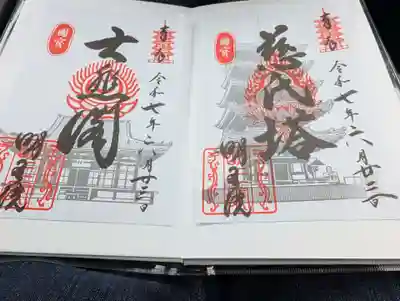 奉拝
令和七年六月廿二日
慈氏塔
明王院
國寶
奉拝
令和七年六月廿二日
大悲閣
明王院